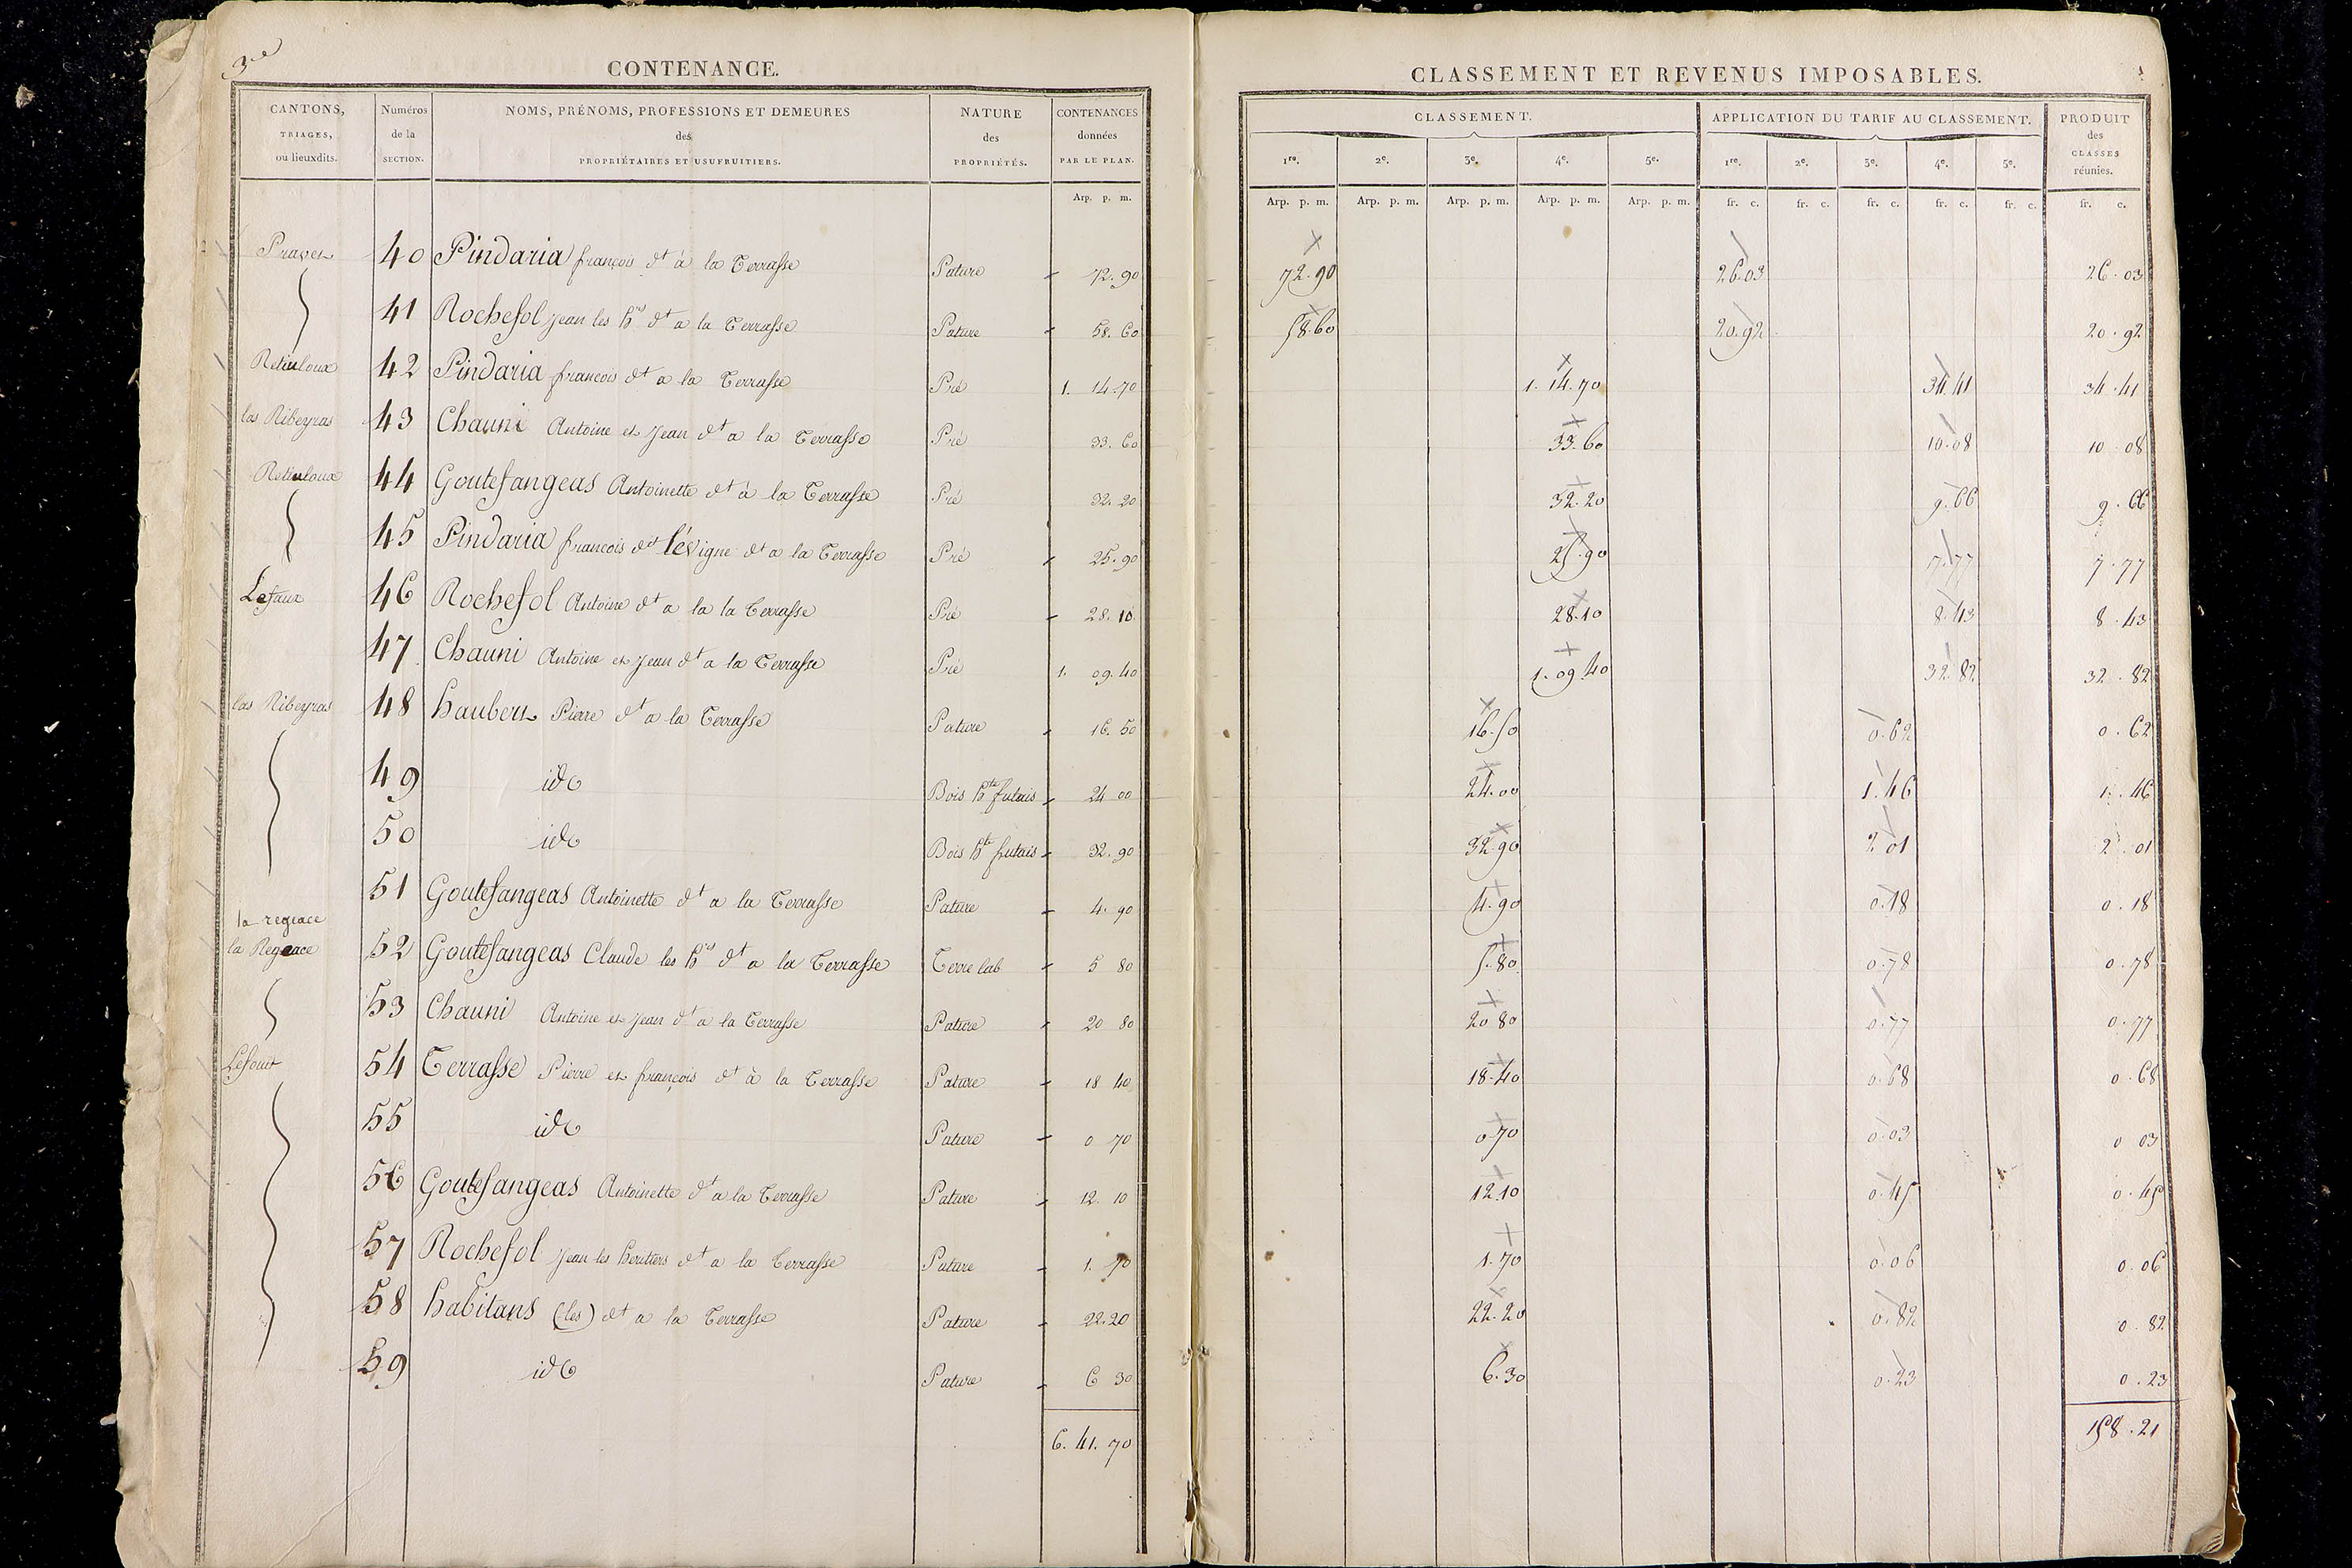 3e
CONTENANCE.
CANTONS, TRIAGES, ou lieuxdits.
Numéros de la SECTION.
NOMS, PRÉNOMS, PROFESSIONS ET DEMEURES des PROPRIÉTAIRES ET USUFRUITIERS.
NATURE des PROPRIÉTÉS.
CONTENANCES données PAR LE PLAN.
Arp. p. m.
CLASSEMENT ET REVENUS IMPOSABLES.
CLASSEMENT.
APPLICATION DU TARIF AU CLASSEMENT.
PRODUIT des CLASSES réunies.
1re. 2e. 3e. 4e. 5e. 1re. 2e. 3e. 4e. 5e.
Arp. p. m. Arp. p. m. Arp. p. m. Arp. p. m. Arp. p. m. fr. c. fr. c. fr. c. fr. c. fr. c. fr. c.
40 Pindaria françois dt à la Terrasse Pature 72.90 72.90 26.03 26.03
41 Rochefol jean les hrs dt a la Terrasse Pature 58.60 58.60 20.92 20.92
Retiuloux 42 Pindaria francois dt a la Terrasse Pré 1. 14.70 1.14.70 34.41 34.41
las Ribeyras 43 Chauni Antoine et jean dt a la Terrasse Pré 33.60 33.60 10.08 10 08
Retiuloux 44 Goutefangeas Antoinette dt à la Terrasse Pré 32.20 32.20 9.66 9.66
45 Pindaria francois dit lévigne dt a la Terrasse Pré 25.90 25.90 7.77 7.77
Lefaux 46 Rochefol Antoine dt a la la Terrasse Pré 28.10 28.10 8.43 8.43
47 Chauni Antoine et jean dt a la Terrasse Pré 1. 09.40 1.09.40 32.82 32.82
las Ribeyras 48 haubert Pierre dt a la Terrasse Pature 16.50 16.50 0.62 0.62
49 ido Bois hte futais 24 00 24.00 1.46 1.46
50 ido Bois hte futais 32.90 32.90 2.01 2.01
51 Goutefangeas Antoinette dt a la Terrasse Pature 4.90 4.90 0.18 0.18
la regeace
la Regeace 52 Goutefangeas Claude les hrs dt a la Terrasse Terre lab 5 80 5.80 0.78 0.78
53 Chauni Antoine et jean dt a la Terrasse Pature 20 80 20 80 0.77 0.77
54 Terrasse Pierre et françois dt à la Terrasse Pature 18 40 18.40 0.68 0.68
55 ido Pature 0 70 0.70 0.03 0 03
56 Goutefangeas Antoinette dt a la Terrasse Pature 12.10 12.10 0.45 0.45
57 Rochefol jean les heritiers dt a la Terrasse Pature 1. 70 1.70 0.06 0.06
58 habitans (les) dt a la Terrasse Pature 22.20 22.20 0.82 0.82
59 ido Pature 6 30 6.30 0.23 0.23
6. 41. 70 158.21